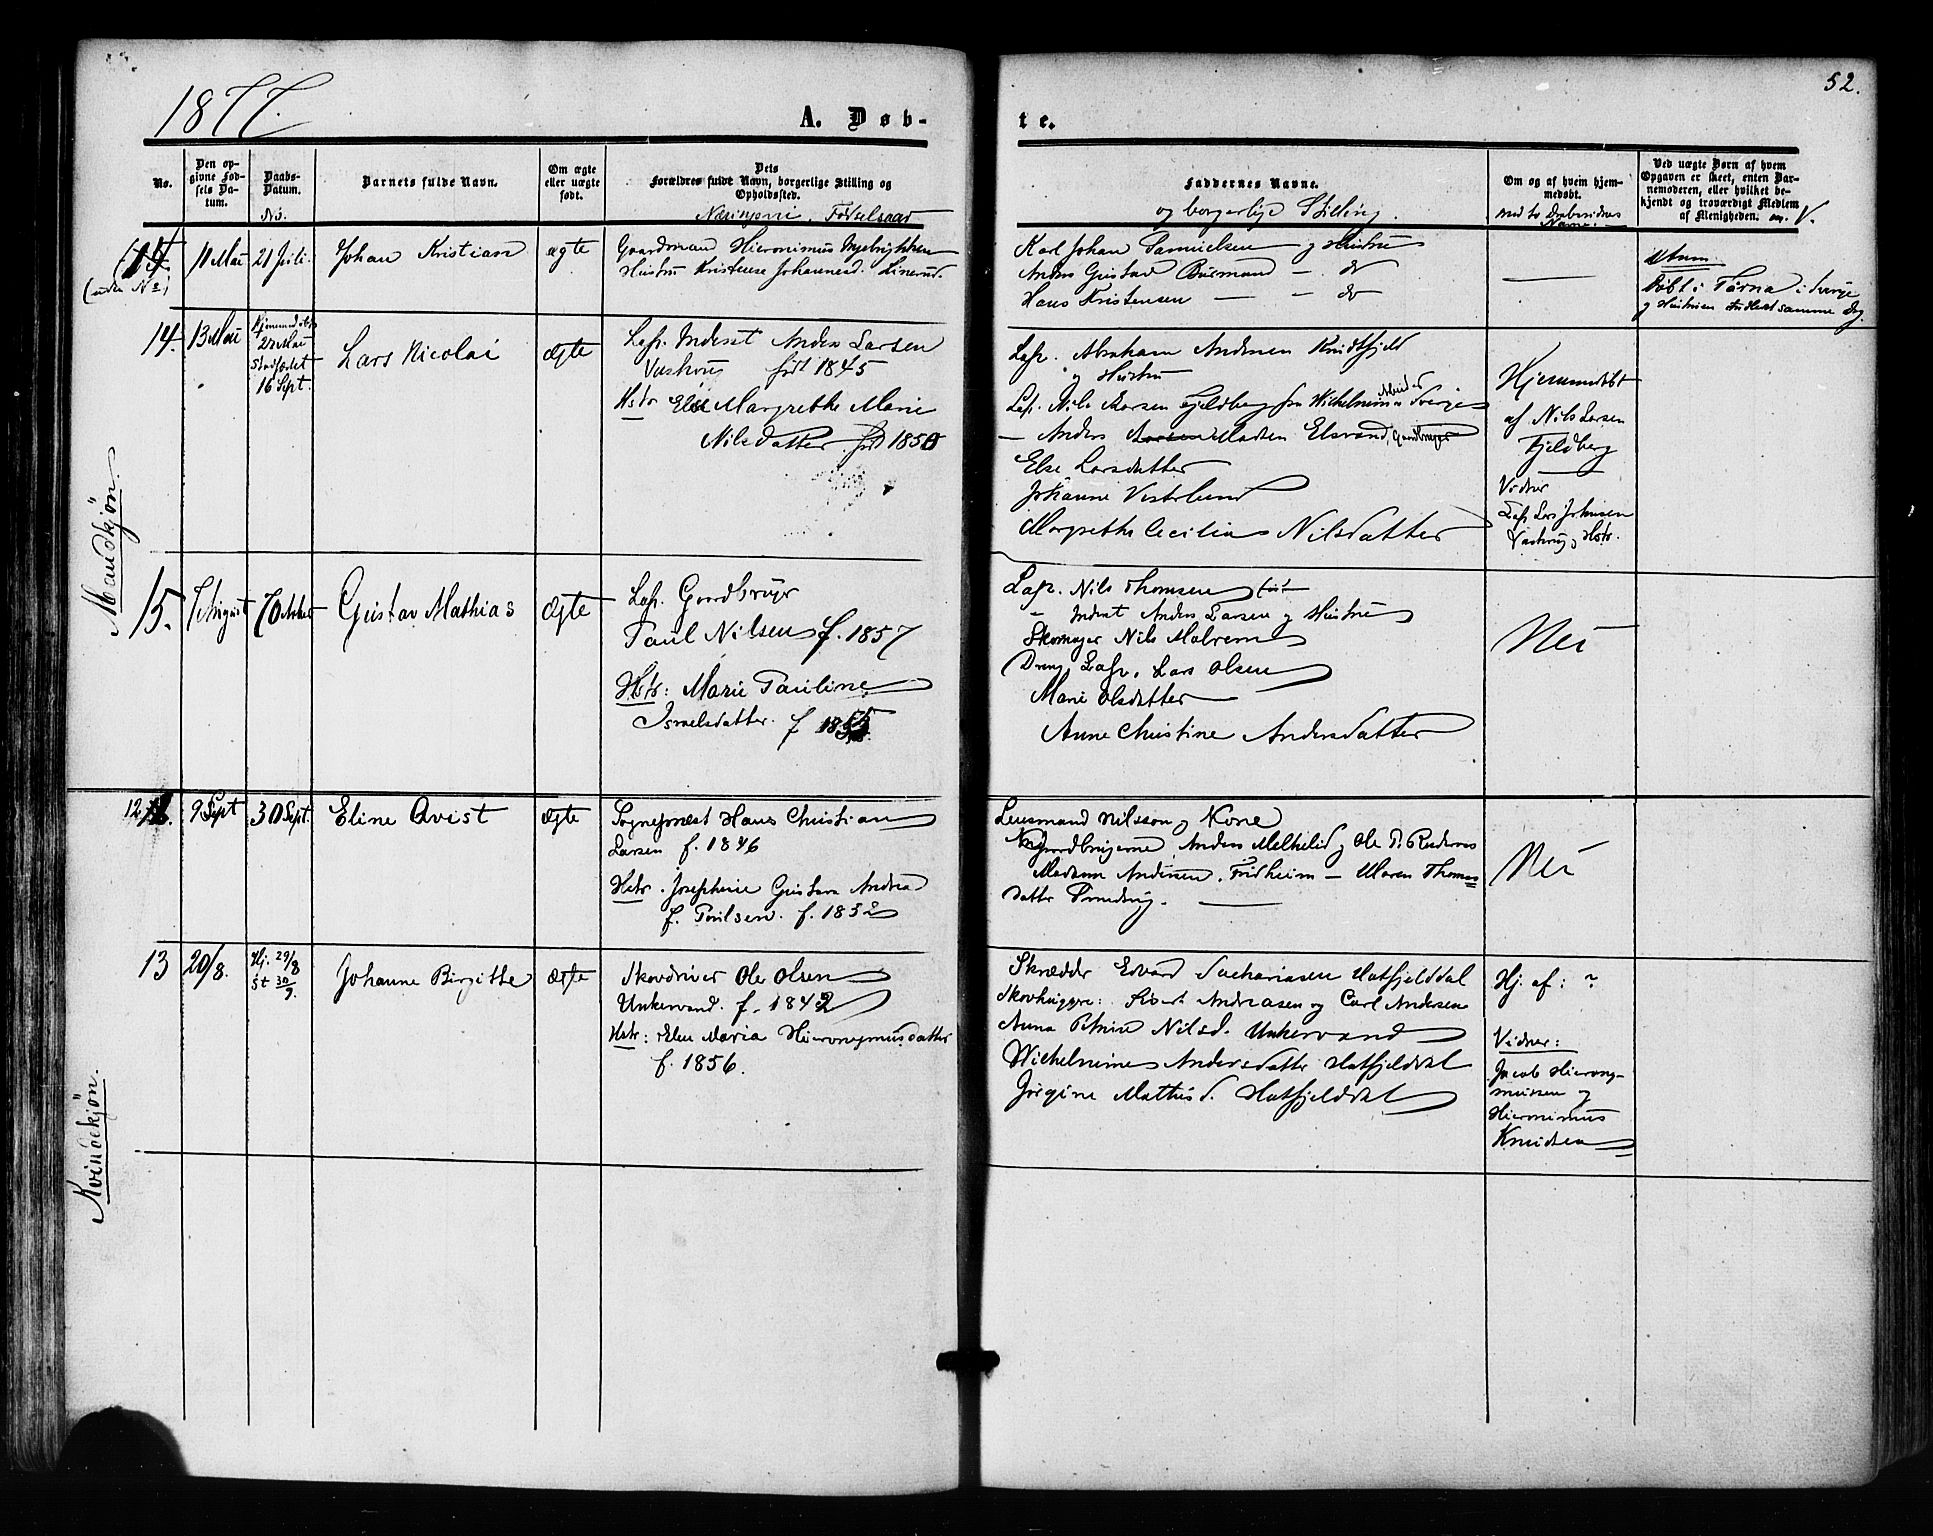 1877.
A. Døb-
te.
52.
No.
Den op-
givne Fød-
sels Da-
tum.
Daabs-
Datum.
Barnets fulde Navn.
Om ægte
eller uægte
født.
Dets
Forældres fulde Navn, borgerlige Stilling og
Opholdssted.
Fødselsaar
Faddernes Navne.
og borgerlige Stilling.
Om og af hvem hjem-
medøbt.
Ved uægte Børn af hvem
Opgaven er skeet, enten Bar-
nemoderen, eller hvilket be-
kjendt og troværdigt Medlem
af Menigheden.
Mandkjön.
(uden No)
11 Mai
21 Juli
Johan Kristian
ægte
Gaardmand Hieronimus Ingebrigtsen
Hustru Kristense Johannesd.
Karl Johan Samuelsen og Hustru
Anders Gustav - do
Hans Kristensen - - do
Anm.
Døbt i Tärna i Sverige
og Hustruen Indledt samme Dag
14.
13 Mai
Hjemmedøbt
27 Mai
Stadfæstet
16 Sept.
Lars Nicolai
Ægte
Lap. Inderst Anders Larsen
født 1845
Hstr Else Margrethe Marie
Nilsdatter født 1850
Lap. Abraham Andersen Knudtfjeld
og Hustru
Lap. Nils Larsen Fjeldberg fra Wilhelmina Sverige
- Anders Larsen Madsen Elsvand, Gaardbruger
Else Larsdatter
Johanne Vesterlund
Margrethe Cecilia Nilsdatter
Hjemmedøbt
af Nils Larsen
Fjeldberg
Vidner
Lap. Lars Johnsen
og Hstr.
15.
7 August
7 Oktober
Gustav Mathias
Ægte
Lap. Gaardbruger
Paul Nilsen f. 1857
Hstr: Marie Pauline
Israelsdatter. f 1855
Lap. Nils Thomsen
- Inderst Anders Larsen og Hustru
Skomager Nils Malvern
Dreng Lap. Lars Olsen
Marie Olsdatter
Anne Christine Andersdatter
Nei
Kvindekjön.
12
9 Sept
30 Sept.
Eline Qvist
Ægte
Sognepræst Hans Christian
Larsen f. 1846
Hstr. Josephine Gustava Andrea
f. Poulsen. f. 1852
Lensmand Nilsson og Kone
Gaardbrugerne Anders Melkelid og Ole P.
Madam Andersen, Fridheim - Maren Thomas
datter
Nei
13
20/8.
Hj. 29/8
St 30/9.
Johanne Birgitte
Ægte
Skovdriver Ole Olsen
Unkervand. f. 1842
Hstr: Elen Maria Hieronymusdatter
f. 1856.
Skrædder Edvard Sachariasen Hatfjelddal
Skovhuggere: Sivert Andreasen og Carl Andersen
Anna Petrine Nilsd. Unkervand
Wilhelmine Andersdatter Hatfjelddal
Jørgine Mathisd. Hatfjelddal
Hj. af: ?
Vidner:
Jacob Hierony-
mussen og
Hieronimus
Knudsen